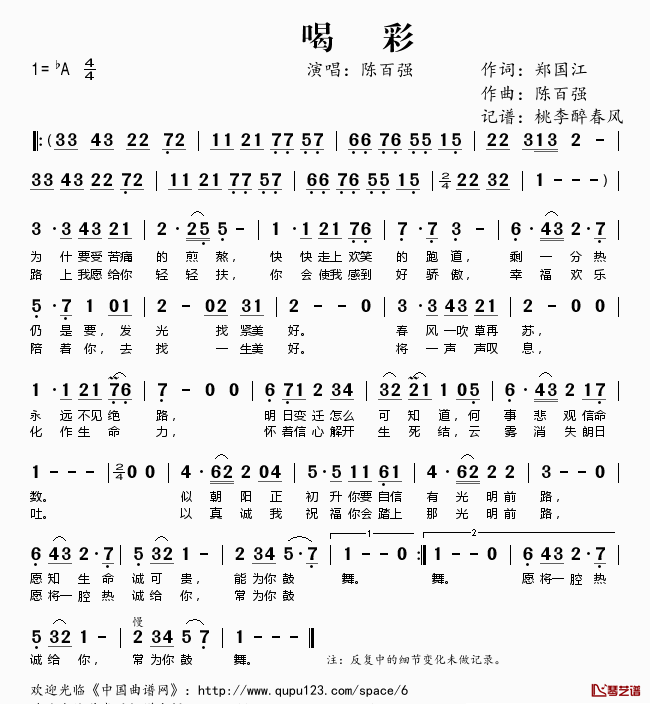 喝 彩
1=♭A 4/4 演唱：陈百强 作词：郑国江
作曲：陈百强
记谱：桃李醉春风
‖:(33 43 22 72 | 11 21 77 57 | 66 76 55 15 | 22 313 2 - |
33 43 22 72 | 11 21 77 57 | 66 76 55 15 | 2/4 22 32 | 1 - - -) |
3 · 3 43 21 | 2 · 25 5 - | 1 · 1 21 76 | 7 · 7 3 - | 6 · 43 2 · 7 |
为 什要受苦痛 的 煎 熬， 快 快走上欢笑 的 跑 道， 剩 一 分 热
路 上我愿给你 轻 轻 扶， 你 会使我感到 好 骄 傲， 幸 福 欢 乐
5 · 7 1 01 | 2 - 02 31 | 2 - - 0 | 3 · 3 43 21 | 2 - - 0 |
仍 是 要，发 光 找 紧美 好。 春 风一吹草再 苏，
陪 着 你，去 找 一 生美 好。 将 一声声叹 息，
1 · 1 21 76 | 2 - 0 0 | 6 71 2 34 | 32 21 1 05 | 6 · 43 2 17 |
永 远不见绝 路， 明 日变 迁 怎么 可 知 道，何 事 悲 观 信命
化 作生 命 力， 怀 着信 心 解开 生 死 结，云 雾 消 失 朗日
1 - - - | 2/4 0 0 | 4 · 62 2 04 | 5 · 5 11 61 | 4 · 62 2 2 | 3 - - 0 |
数。 似 朝 阳 正 初 升你要自信 有 光 明 前 路，
吐。 以 真 诚 我 祝 福你会踏上 那 光 明 前 路，
6 43 2 · 7 | 5 32 1 - | 2 34 5 · 7 | 1 - - 0 :‖ 1 - - 0 | 6 43 2 · 7 |
愿 知 生 命 诚 可 贵， 能 为你 鼓 舞。 舞。 愿 将一 腔 热
愿 将一 腔 热 诚 给 你， 常 为你 鼓
慢
5 32 1 - | 2 34 5 7 | 1 - - - ‖
诚 给 你， 常 为你 鼓 舞。 注：反复中的细节变化未做记录。
欢迎光临《中国曲谱网》：http://www.qupu123.com/space/6
琴艺谱